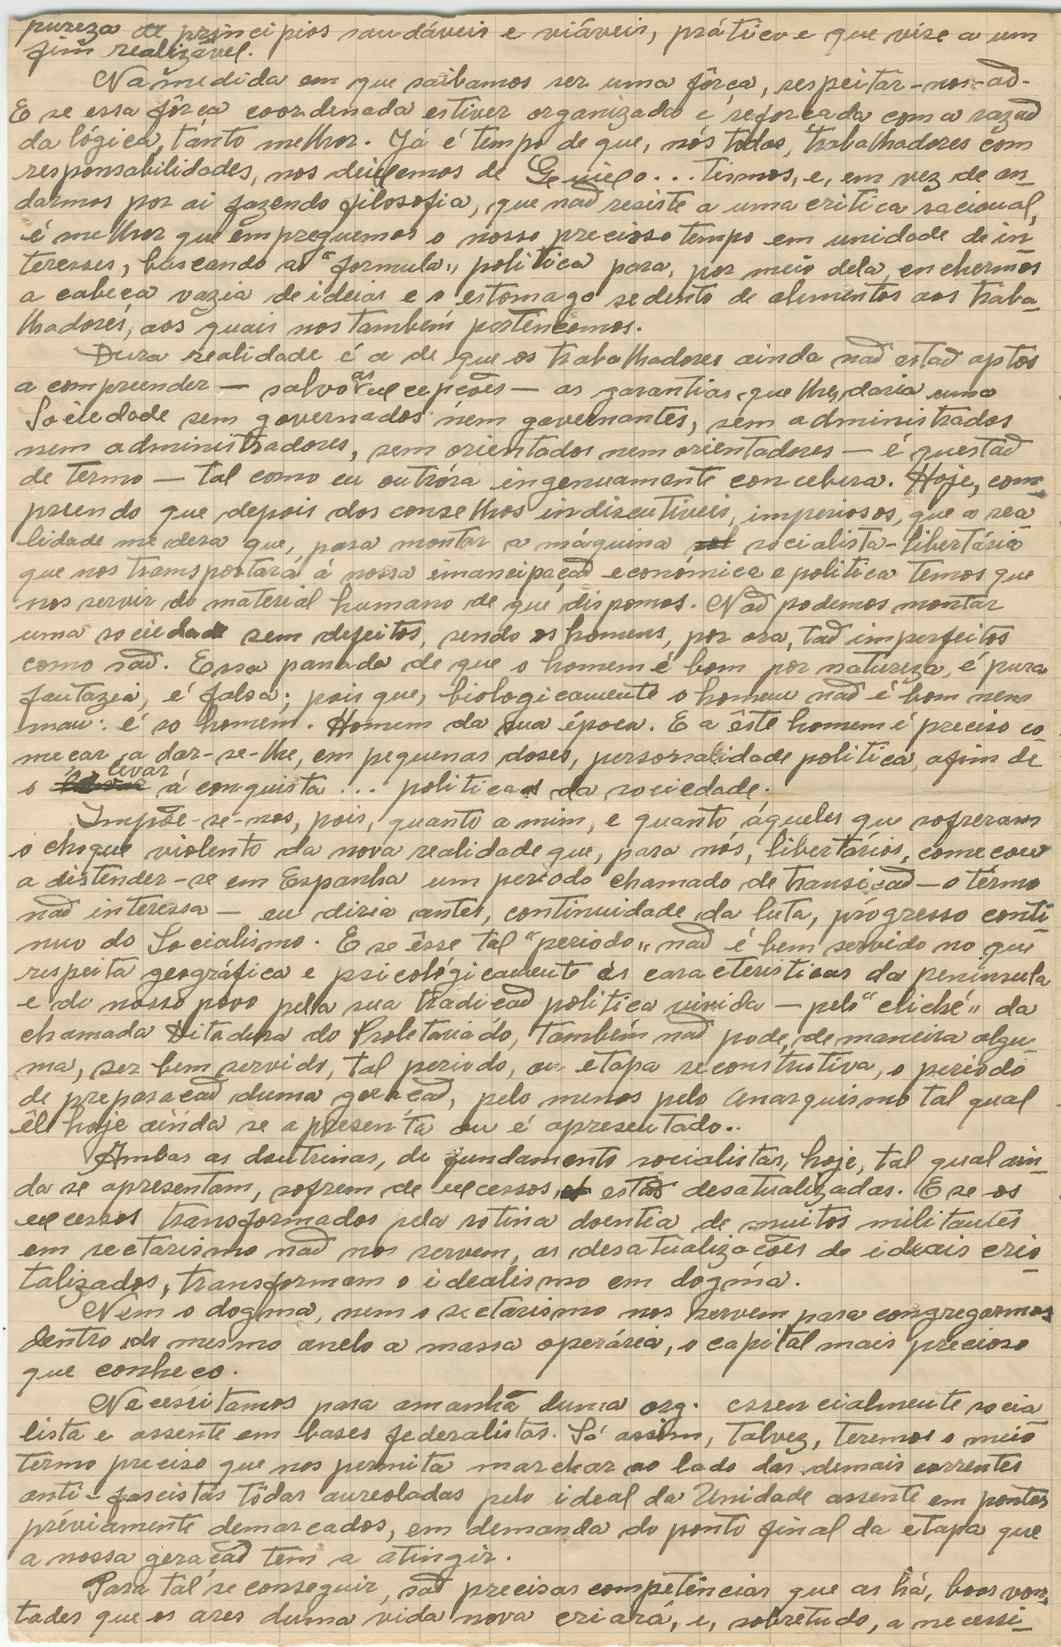 pureza de principios saudáveis e viáveis, prático e que vise a um
fim realizável.
Na medida em que saibamos ser uma fôrça, respeitar-nos-ão.
E se essa fôrça coordenada estiver organizada e reforçada com a razão
da lógica, tanto melhor. Já é tempo de que, nós todos, trabalhadores com
responsabilidades, nos deixemos de ... tismos, e, em vez de an-
darmos por ai fazendo filosofia, que não resiste a uma critica racional,
é melhor que empreguemos o nosso precioso tempo em unidade de in-
teresses, buscando a "formula" politica para, por meio dela, enchermos
a cabeça vazia de ideias e o estomago sedento de alimentos aos traba-
lhadores, aos quais nos também pertencemos.
Dura realidade é a de que os trabalhadores ainda não estão aptos
a compreender — salvo as excepções — as garantias que lhes daria uma
Sociedade sem governados nem governantes, sem administrados
nem administradores, sem orientados nem orientadores — é questão
de termo — tal como eu outróra ingenuamente concebera. Hoje, com-
preendo que depois dos conselhos indiscutiveis, imperiosos, que a rea
lidade me dera que, para montar a máquina socialista-libertária
que nos transportará á nossa emancipação económica e politica temos que
nos servir do material humano de que dispomos. Não podemos montar
uma sociedade sem defeitos, sendo os homens, por ora, tão imperfeitos
como são. Essa panada de que o homem é bom por natureza, é pura
fantazia, é falsa; pois que, biologicamente o homem não é bom nem
mau: é so homem. Homem da sua época. E a êste homem é preciso co-
meçar a dar-se-lhe, em pequenas doses, personalidade politica, afim de
o levar á conquista ... politica da sociedade.
Impõe-se-nos, pois, quanto a mim, e quanto áqueles que sofreram
o choque violento da nova realidade que, para nós, libertários, começou
a distender-se em Espanha um periodo chamado de transição — o termo
não interessa — eu diria antes, continuidade da luta, prógresso conti-
nuo do Socialismo. E se êsse tal "periodo" não é bem servido no que
respeita geográfica e psicológicamente ás caracteristicas da peninsula
e do nosso povo pela sua tradição politica vivida — pelo "cliché" da
chamada Ditadura do Proletariado, também não pode, de maneira algu-
ma, ser bem servido, tal periodo, ou etapa reconstrutiva, o periodo
de preparação duma geração, pelo menos pelo Anarquismo tal qual
êle hoje ainda se apresenta ou é apresentado..
Ambas as doutrinas, de fundamento socialistas, hoje, tal qual ain-
da se apresentam, sofrem de excessos, estão desatualizadas. E se os
excessos transformados pela rotina doentia de muitos militantes
em sectarismo não nos servem, as desatualizações de ideais cris-
talizados, transformam o idealismo em dogma.
Nem o dogma, nem o sectarismo nos servem para congregarmos
dentro do mesmo anelo a massa operária, o capital mais precioso
que conheço.
Necessitamos para amanhã duma org. essencialmente socia
lista e assente em bases federalistas. Só assim, talvez, teremos o meio
termo preciso que nos permita marchar ao lado das demais correntes
anti-fascistas tôdas aureoladas pelo ideal da Unidade assente em pontos
préviamente demarcados, em demanda do ponto final da etapa que
a nossa geração tem a atingir.
Para tal se conseguir, são precisas competências que as há, boas von-
tades que os ares duma vida nova criará, e, sobretudo, a necessi-